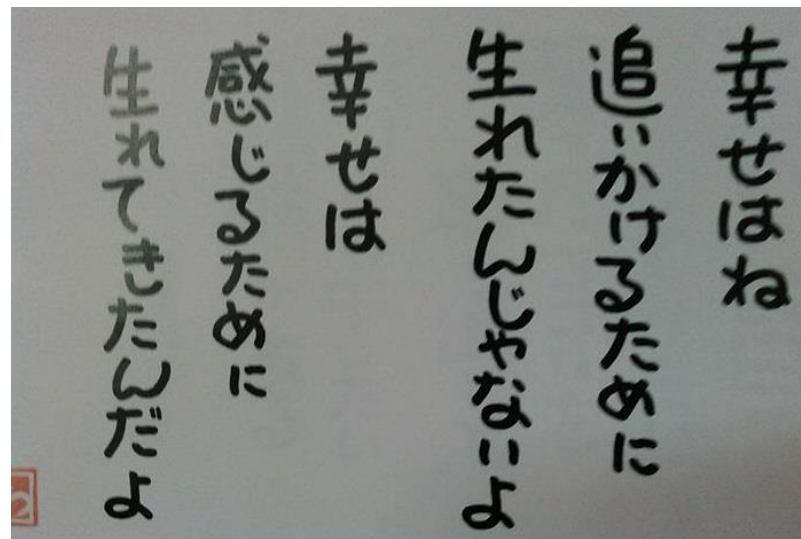 幸せはね
追いかけるために
生れたんじゃないよ
幸せは
感じるために
生れてきたんだよ